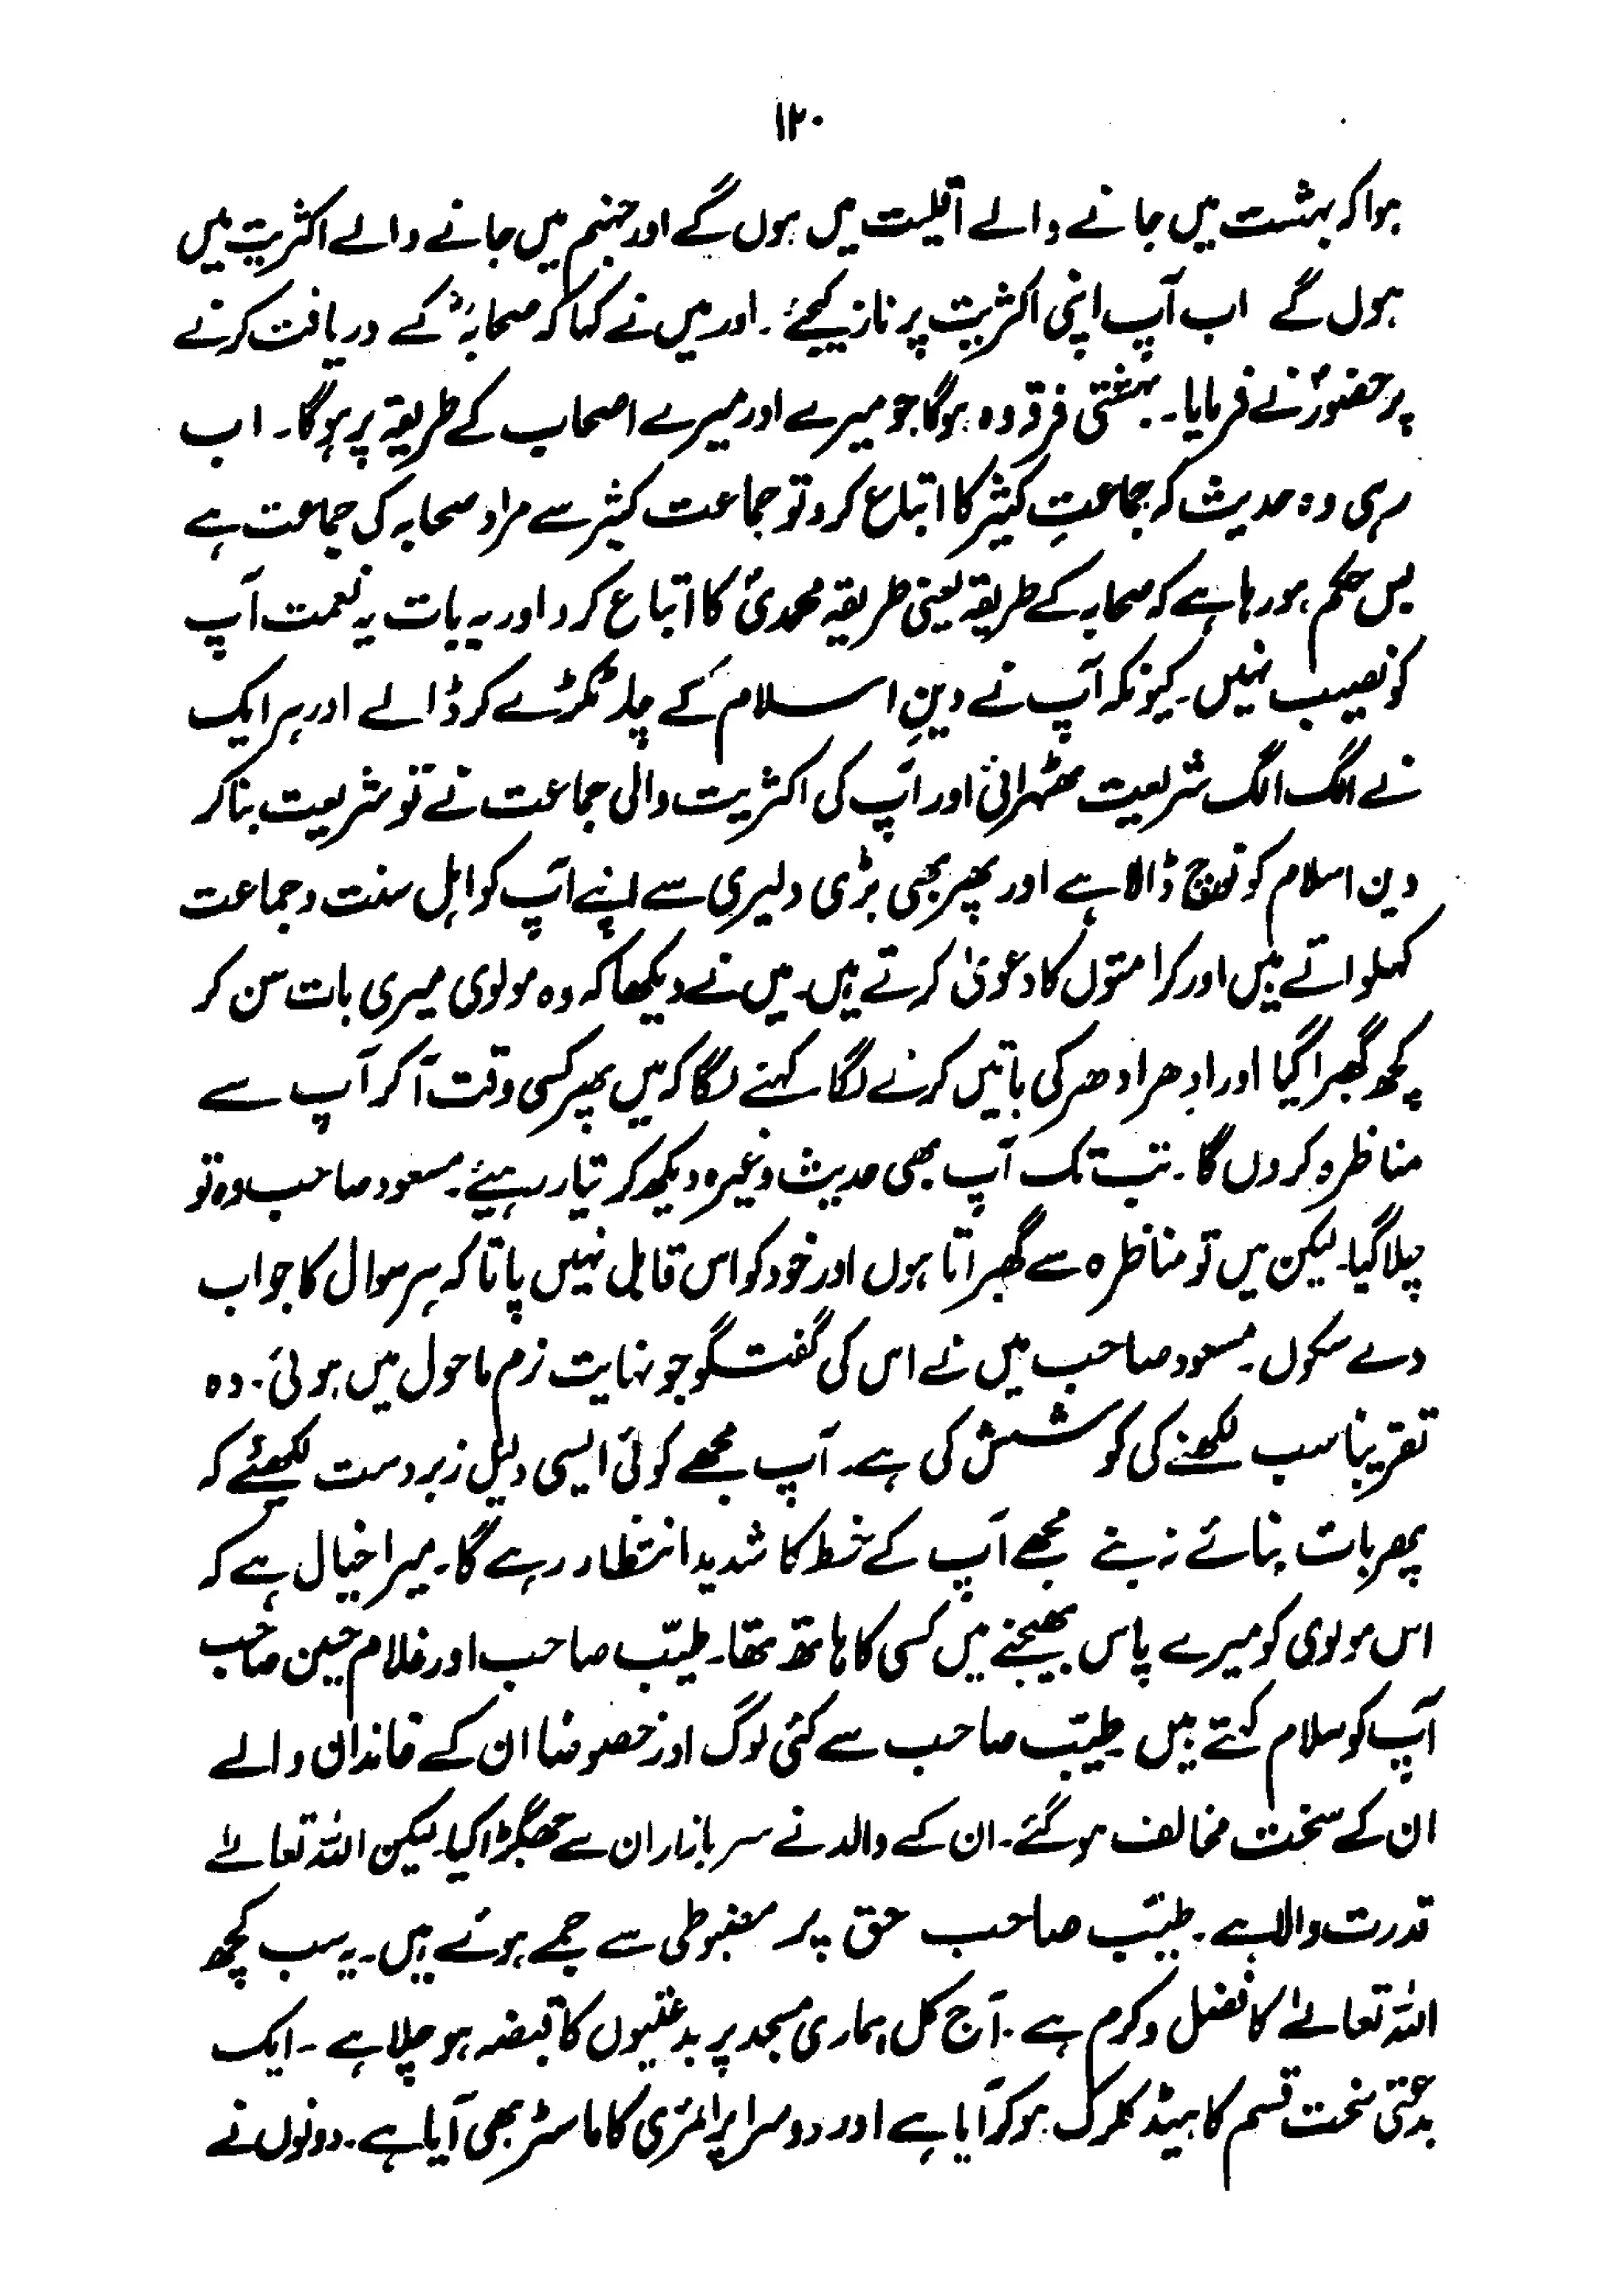 ۱۲۰
ہوا کہ بہشت میں جانے والے اقلیت میں ہوں گے اور جہنم میں جانے والے اکثریت میں
ہوں گے اب آپ اپنی اکثریت پر ناز کیجئے۔ اور میں نے کہا کہ صحابہؓ کے دریافت کرنے
پر حضورؐ نے فرمایا۔ بہشتی فرقہ وہ ہوگا جو میرے اور میرے اصحاب کے طریقہ پر ہوگا۔ اب
رہی وہ حدیث کہ جماعتِ کثیر کا اتباع کرو تو جماعت کثیر سے مراد صحابہ کی جماعت ہے
بس حکم ہو رہا ہے کہ صحابہ کے طریقہ یعنی طریقہ محمدیؐ کا اتباع کرو اور یہ بات یہ نعمت آپ
کو نصیب نہیں۔ کیونکہ آپ نے دینِ اسلام کے چار ٹکڑے کر ڈالے اور ہر ایک
نے الگ الگ شریعت ٹھہرائی اور آپ کی اکثریت والی جماعت نے تو شریعت بنا کر
دین اسلام کو نوچ ڈالا ہے اور پھر بھی بڑی دلیری سے اپنے آپ کو اہل سنت وجماعت
کہلواتے ہیں اور کرامتوں کا دعویٰ کرتے ہیں۔ میں نے دیکھا کہ وہ مولوی میری بات سن کر
کچھ گھبرا گیا اور ادھر ادھر کی باتیں کرنے لگا کہنے لگا کہ میں پھر کسی وقت آکر آپ سے
مناظرہ کروں گا۔ تب تک آپ بھی حدیث وغیرہ دیکھ کر تیار رہیئے۔ مسعود صاحب وہ تو
چلا گیا۔ لیکن میں تو مناظرہ سے گھبراتا ہوں اور خود کو اس قابل نہیں پاتا کہ ہر سوال کا جواب
دے سکوں۔ مسعود صاحب میں نے اس کی گفتگو جو نہایت نرم ماحول میں ہوئی۔ وہ
تقریباً سب لکھنے کی کوشش کی ہے۔ آپ مجھے کوئی ایسی دلیل زبردست لکھئے کہ
پھر بات بنائے نہ بنے مجھے آپ کے خط کا شدید انتظار رہے گا۔ میرا خیال ہے کہ
اس مولوی کو میرے پاس بھیجنے میں کسی کا ہاتھ تھا۔ طیّب صاحب اور غلام حسین صاحب
آپ کو سلام کہتے ہیں طیّب صاحب سے کئی لوگ اور خصوصاً ان کے خاندان والے
ان کے سخت مخالف ہوگئے۔ ان کے والد نے سر بازار ان سے جھگڑا کیا۔ لیکن اللہ تعالےٰ
قدرت والا ہے۔ طیّب صاحب حق پر مضبوطی سے جمے ہوئے ہیں۔ یہ سب کچھ
اللہ تعالےٰ کا فضل وکرم ہے۔ آج کل ہماری مسجد پر بدعتیوں کا قبضہ ہو چلا ہے۔ ایک
بدعتی سخت قسم کا ہیڈ کلرک ہو کر آیا ہے اور دوسرا پرائمری کا ماسٹر بھی آیا ہے۔ دونوں نے